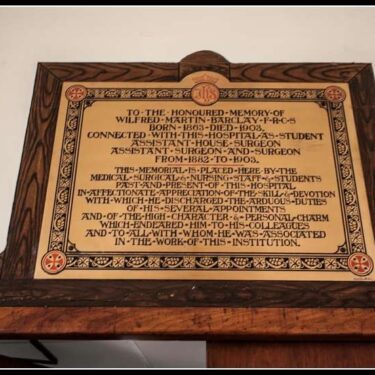 IHS
TO·THE·HONOURED·MEMORY·OF
WILFRED·MARTIN·BARCLAY·F·R·C·S
BORN·1863·DIED·1903,
CONNECTED·WITH·THIS·HOSPITAL·AS·STUDENT
ASSISTANT·HOUSE·SURGEON
ASSISTANT·SURGEON·AND·SURGEON
FROM·1882·TO·1903.
THIS·MEMORIAL·IS·PLACED·HERE·BY·THE
MEDICAL·SURGICAL·&·NURSING·STAFF·&·STUDENTS
PAST·AND·PRESENT·OF·THIS·HOSPITAL
IN·AFFECTIONATE·APPRECIATION·OF·THE·SKILL·&·DEVOTION
WITH·WHICH·HE·DISCHARGED·THE·ARDUOUS·DUTIES
OF·HIS·SEVERAL·APPOINTMENTS
AND·OF·THE·HIGH·CHARACTER·&·PERSONAL·CHARM
WHICH·ENDEARED·HIM·TO·HIS·COLLEAGUES
AND·TO·ALL·WITH·WHOM·HE·WAS·ASSOCIATED
IN·THE·WORK·OF·THIS·INSTITUTION.